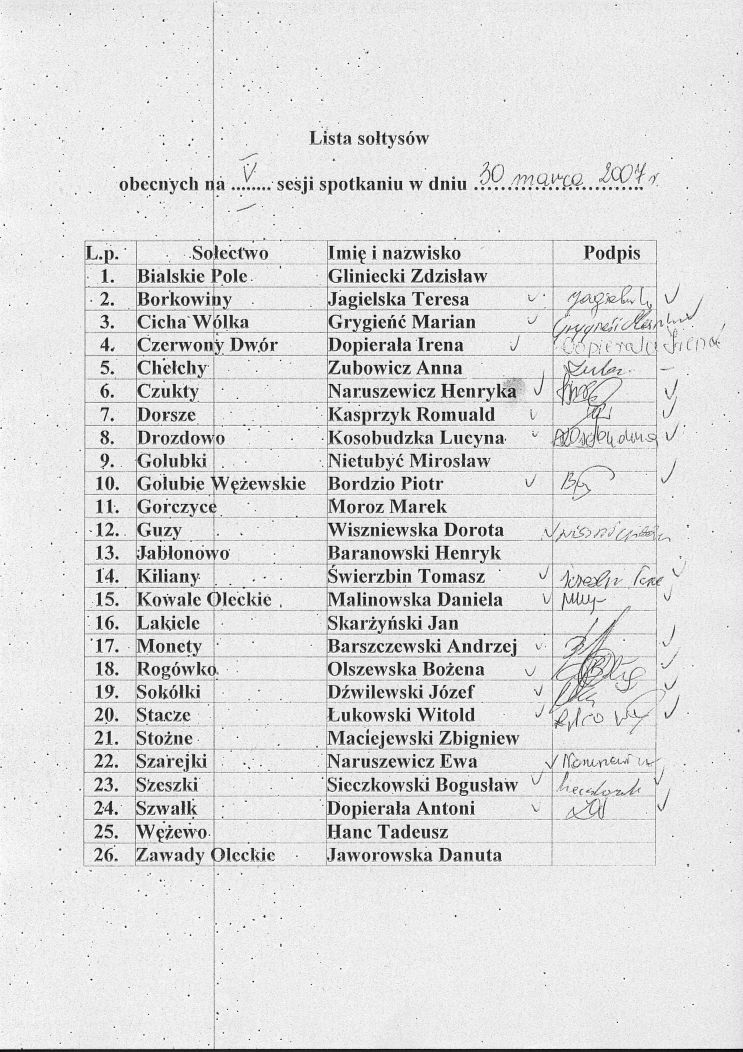 Lista sołtysów
obecnych na ...V... sesji spotkaniu w dniu 30 marca 2007 r.
L.p. Sołectwo Imię i nazwisko Podpis
1. Bialskie Pole Gliniecki Zdzisław
2. Borkowiny Jagielska Teresa
3. Cicha Wólka Grygieńć Marian
4. Czerwony Dwór Dopierała Irena Dopierała Irena
5. Chełchy Zubowicz Anna
6. Czukty Naruszewicz Henryka
7. Dorsze Kasprzyk Romuald
8. Drozdowo Kosobudzka Lucyna
9. Golubki Nietubyć Mirosław
10. Golubie Wężewskie Bordzio Piotr
11. Gorczyce Moroz Marek
12. Guzy Wiszniewska Dorota
13. Jabłonowo Baranowski Henryk
14. Kiliany Świerzbin Tomasz
15. Kowale Oleckie Malinowska Daniela
16. Lakiele Skarżyński Jan
17. Monety Barszczewski Andrzej
18. Rogówko Olszewska Bożena
19. Sokółki Dźwilewski Józef
20. Stacze Łukowski Witold
21. Stożne Maciejewski Zbigniew
22. Szarejki Naruszewicz Ewa
23. Szeszki Sieczkowski Bogusław
24. Szwałk Dopierała Antoni
25. Wężewo Hanc Tadeusz
26. Zawady Oleckie Jaworowska Danuta